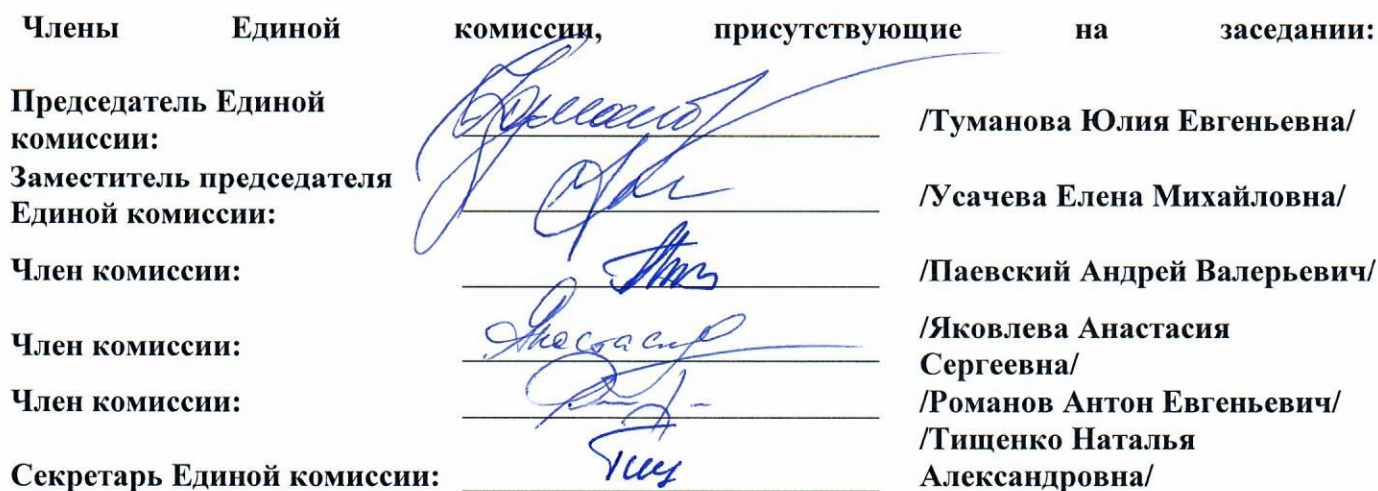 Члены Единой комиссии, присутствующие на заседании:
Председатель Единой
комиссии:
/Туманова Юлия Евгеньевна/
Заместитель председателя
Единой комиссии:
/Усачева Елена Михайловна/
Член комиссии:
/Паевский Андрей Валерьевич/
Член комиссии:
/Яковлева Анастасия
Сергеевна/
Член комиссии:
/Романов Антон Евгеньевич/
Секретарь Единой комиссии:
/Тищенко Наталья
Александровна/